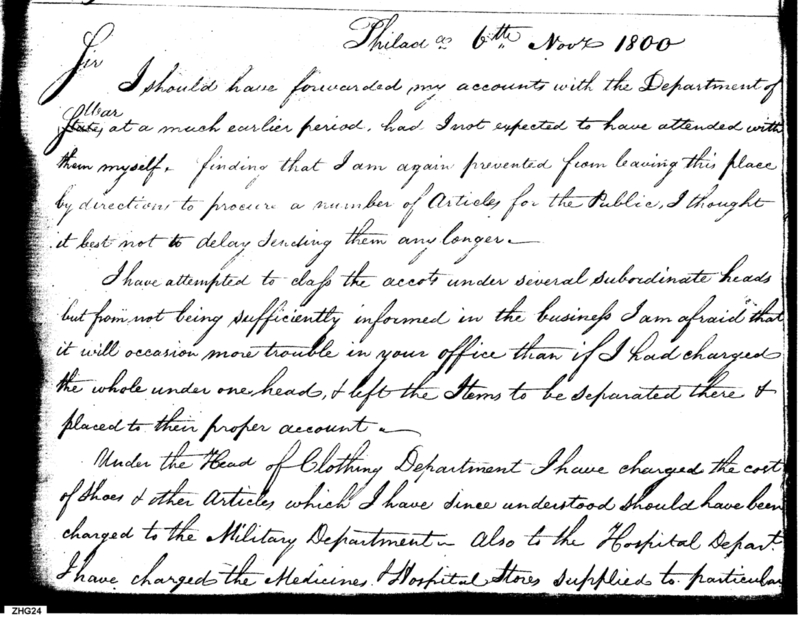 Philada 6th Novr 1800
Sir
I should have forwarded my accounts with the Department of
War
State, at a much earlier period, had I not expected to have attended with
them myself. finding that I am again prevented from leaving this place
by directions to procure a number of Articles for the Public, I thought
it best not to delay sending them any longer.
I have attempted to class the accots under several subordinate heads
but from not being sufficiently informed in the business I am afraid that
it will occasion more trouble in your office than if I had charged
the whole under one head, & left the Items to be separated there &
placed to their proper account.
Under the Head of Clothing Department I have charged the cost
of Shoes & other Articles which I have since understood should have been
charged to the Military Department. Also to the Hospital Depart.
I have charged the Medicines & Hospital Stores supplied to particular
ZHG24